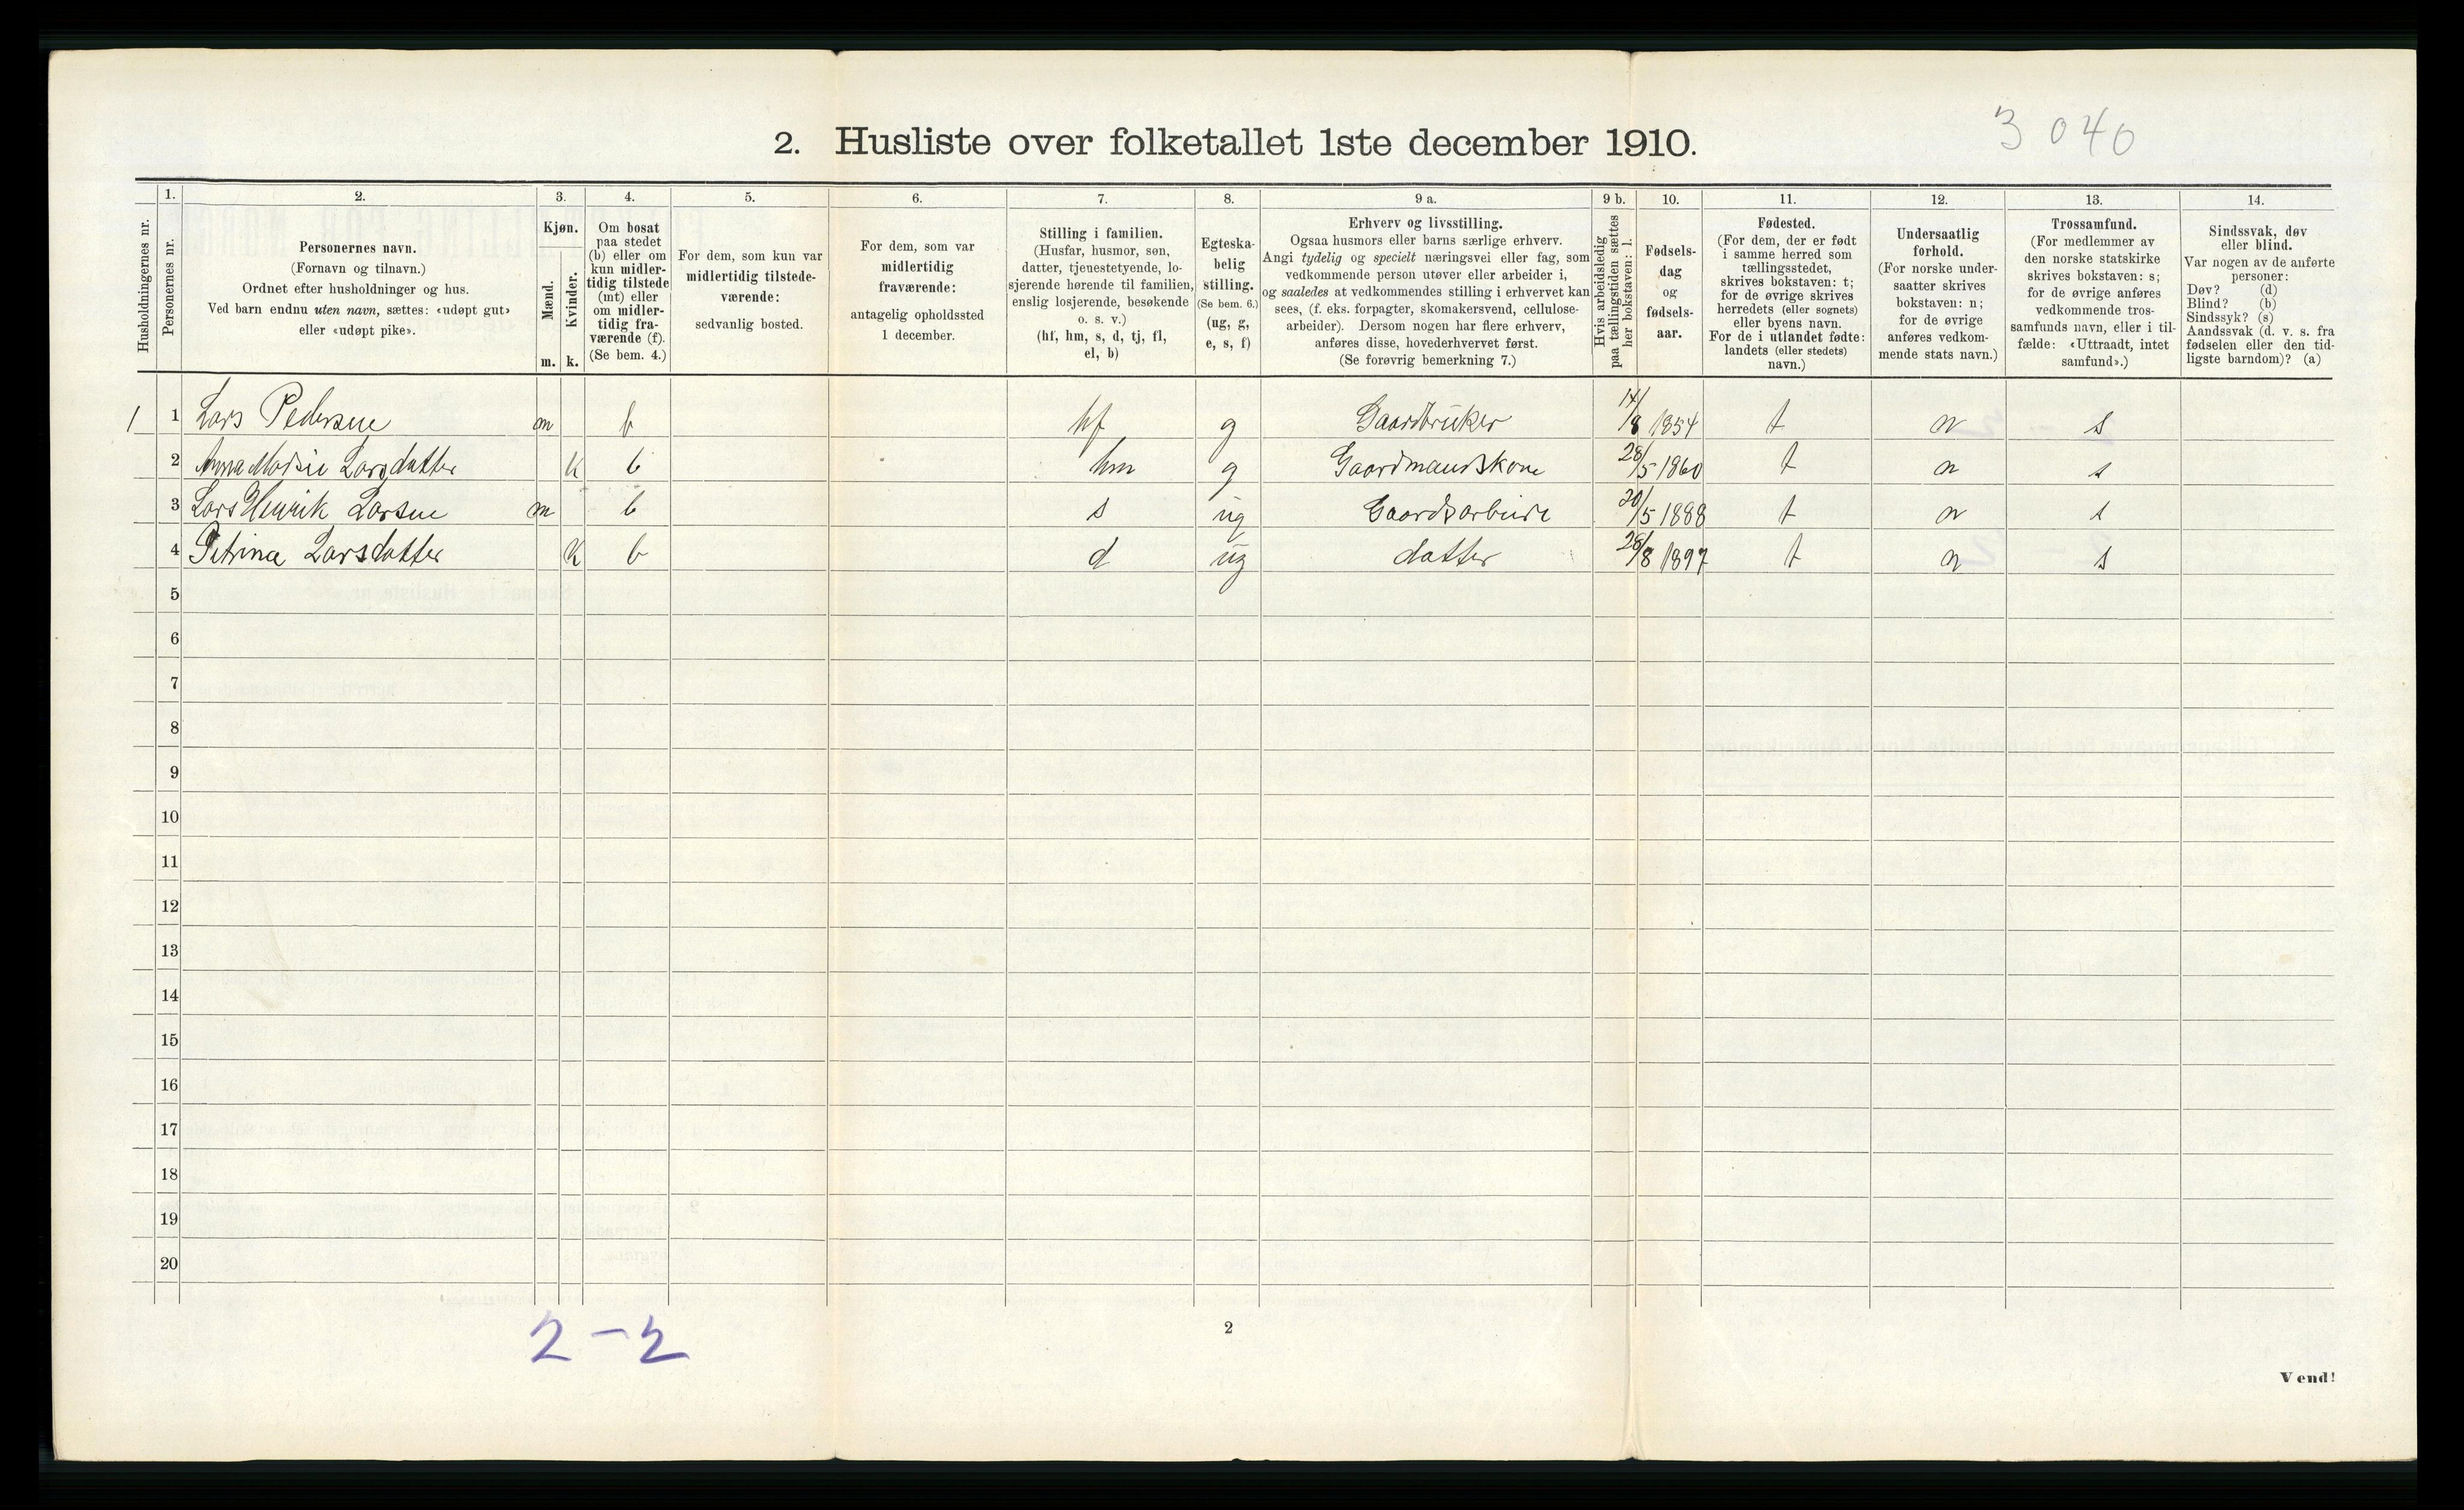 3 040
2. Husliste over folketallet 1ste december 1910.
Husholdningernes nr.
1.
Personernes nr.
2.
Personernes navn.
(Fornavn og tilnavn.)
Ordnet efter husholdninger og hus.
Ved barn endnu uten navn, sættes: «udøpt gut»
eller «udøpt pike».
3.
Kjøn.
Mænd.
m.
Kvinder.
k.
4.
Om bosat
paa stedet
(b) eller om
kun midler-
tidig tilstede
(mt) eller
om midler-
tidig fra-
værende (f).
(Se bem. 4.)
5.
For dem, som kun var
midlertidig tilstede-
værende:
sedvanlig bosted.
6.
For dem, som var
midlertidig
fraværende:
antagelig opholdssted
1 december.
7.
Stilling i familien.
(Husfar, husmor, søn,
datter, tjenestetyende, lo-
sjerende hørende til familien,
enslig losjerende, besøkende
o. s. v.)
(hf, hm, s, d, tj, fl,
el, b)
8.
Egteska-
belig
stilling.
(Se bem. 6.)
(ug, g,
e, s, f)
9 a.
Erhverv og livsstilling.
Ogsaa husmors eller barns særlige erhverv.
Angi tydelig og specielt næringsvei eller fag, som
vedkommende person utøver eller arbeider i,
og saaledes at vedkommendes stilling i erhvervet kan
sees, (f. eks. forpagter, skomakersvend, cellulose-
arbeider). Dersom nogen har flere erhverv,
anføres disse, hovederhvervet først.
(Se forøvrig bemerkning 7.)
9 b.
Hvis arbeidsledig
paa tællingstiden sættes
her bokstaven: l.
10.
Fødsels-
dag
og
fødsels-
aar.
11.
Fødested.
(For dem, der er født
i samme herred som
tællingsstedet,
skrives bokstaven: t;
for de øvrige skrives
herredets (eller sognets)
eller byens navn.
For de i utlandet fødte:
landets (eller stedets)
navn.)
12.
Undersaatlig
forhold.
(For norske under-
saatter skrives
bokstaven: n;
for de øvrige
anføres vedkom-
mende stats navn.)
13.
Trossamfund.
(For medlemmer av
den norske statskirke
skrives bokstaven: s;
for de øvrige anføres
vedkommende tros-
samfunds navn, eller i til-
fælde: «Uttraadt, intet
samfund».)
14.
Sindssvak, døv
eller blind.
Var nogen av de anførte
personer:
Døv? (d)
Blind? (b)
Sindssyk? (s)
Aandssvak (d. v. s. fra
fødselen eller den tid-
ligste barndom)? (a)
1 1 Lars Pedersen m b hf g Gaardbruker 14/8 1854 t n s
2 Anna Marie Larsdatter K b hm g Gaardmandskone 28/5 1860 t n s
3 Lars Henrik Larsen m b s ug Gaardsarbeide 20/5 1888 t n s
4 Petrina Larsdatter K b d ug datter 28/8 1897 t n s
5
6
7
8
9
10
11
12
13
14
15
16
17
18
19
20
2-2
2
Vend!